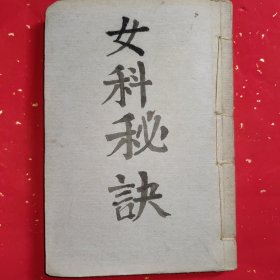 女科秘訣